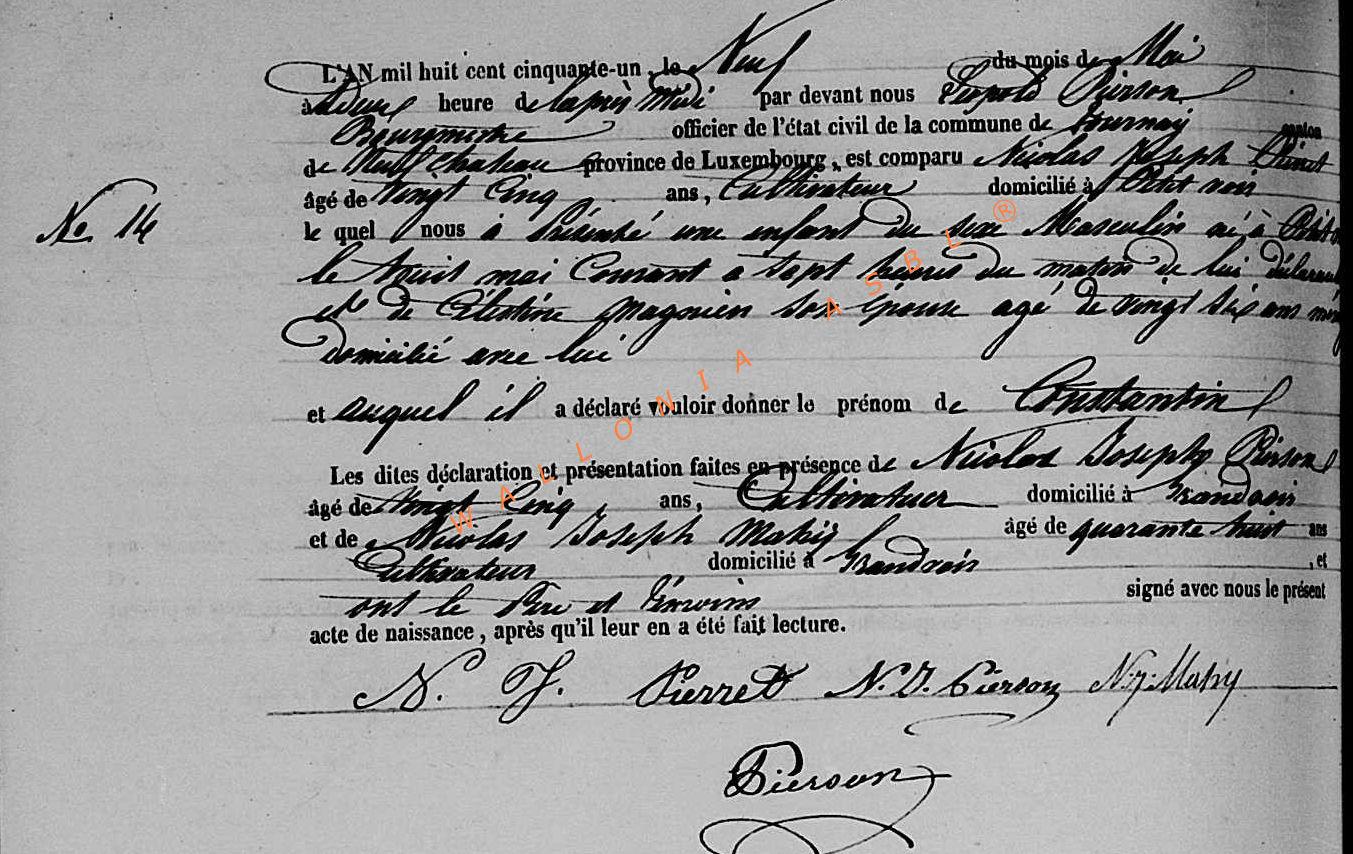 L'AN mil huit cent cinquante-un, le Neuf du mois de Mai
à Deux heure de laprès Midi par devant nous Léopold Pierson
Bourgmestre officier de l'état civil de la commune de Tournay canton
de Neufchateau province de Luxembourg, est comparu Nicolas Joseph Pierret
âgé de Vingt Cinq ans, Cultivateur domicilié à Petit voir
No 14
le quel nous à Présenté une enfant du sexe Masculin né à Petit
le huit mai Courant a sept heures du matin de lui déclarant
et de Célestine Magnien son épouse agé de vingt six ans
domicilié avec lui
et auquel il a déclaré vouloir donner le prénom de Constantin
Les dites déclaration et présentation faites en présence de Nicolas Joseph Pierson
âgé de vingt Cinq ans, Cultivateur domicilié à Grandvoir
et de Nicolas Joseph Mahy âgé de quarante huit ans
Cultivateur domicilié à Grandvoir, et
ont le Père et témoins signé avec nous le présent
acte de naissance, après qu'il leur en a été fait lecture.
N. J. Pierret N. J. Pierson N. J. Mahy
Pierson
WALLONIA ASBL ®